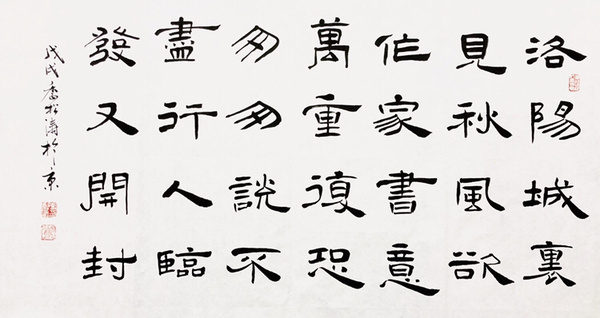 洛陽城裏
見秋風欲
作家書意
萬重復恐
匆匆說不
盡行人臨
發又開封
戊戌松濤於京